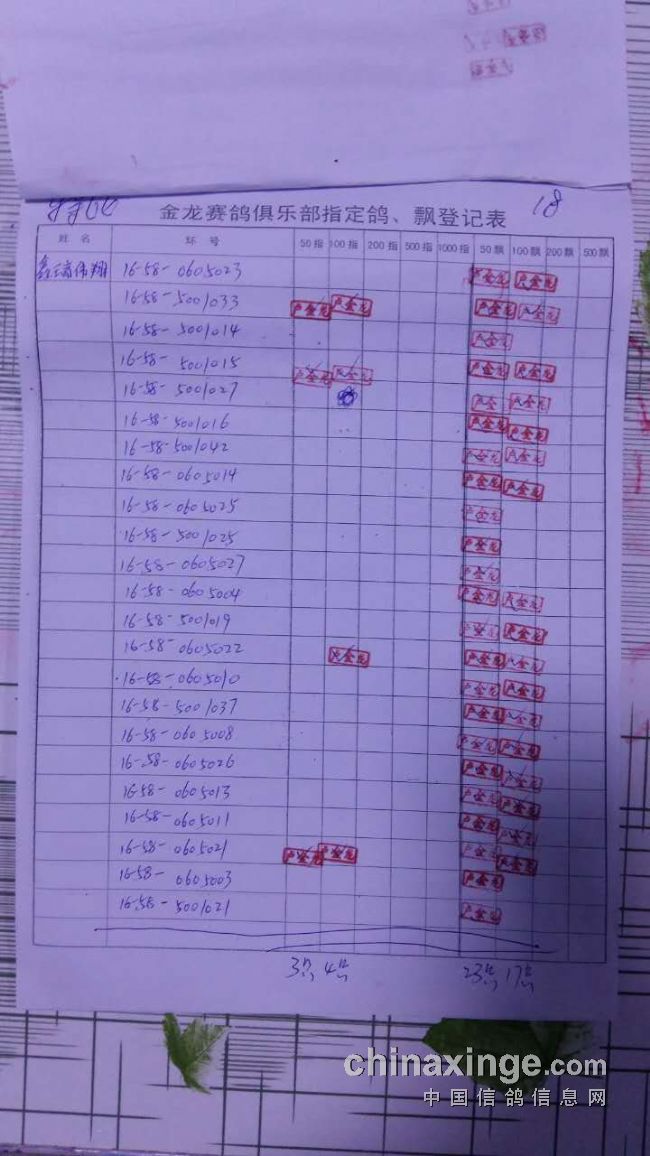 18
金龙赛鸽俱乐部指定鸽、飘登记表
姓 名 环 号 50指 100指 200指 500指 1000指 50飘 100飘 200飘 500飘
16-58-0605023 卢金龙 卢金龙
16-58-5001033 卢金龙 卢金龙 卢金龙 卢金龙
16-58-5001014 卢金龙
16-58-5001015 卢金龙 卢金龙 卢金龙 卢金龙
16-58-5001027 卢金龙 卢金龙
16-58-5001016 卢金龙 卢金龙
16-58-5001042 卢金龙 卢金龙
16-58-0605014 卢金龙 卢金龙
16-58-0605025 卢金龙
16-58-5001025 卢金龙
16-58-0605027 卢金龙
16-58-0605004 卢金龙 卢金龙
16-58-5001019 卢金龙 卢金龙
16-58-0605022 卢金龙 卢金龙 卢金龙
16-58-0605010 卢金龙 卢金龙
16-58-5001037 卢金龙 卢金龙
16-58-0605008 卢金龙 卢金龙
16-58-0605026 卢金龙 卢金龙
16-58-0605013 卢金龙 卢金龙
16-58-0605011 卢金龙 卢金龙
16-58-0605021 卢金龙 卢金龙 卢金龙 卢金龙
16-58-0605003 卢金龙
16-58-5001021 卢金龙
3 4 23 17
chinaxinge.com
中国信鸽信息网